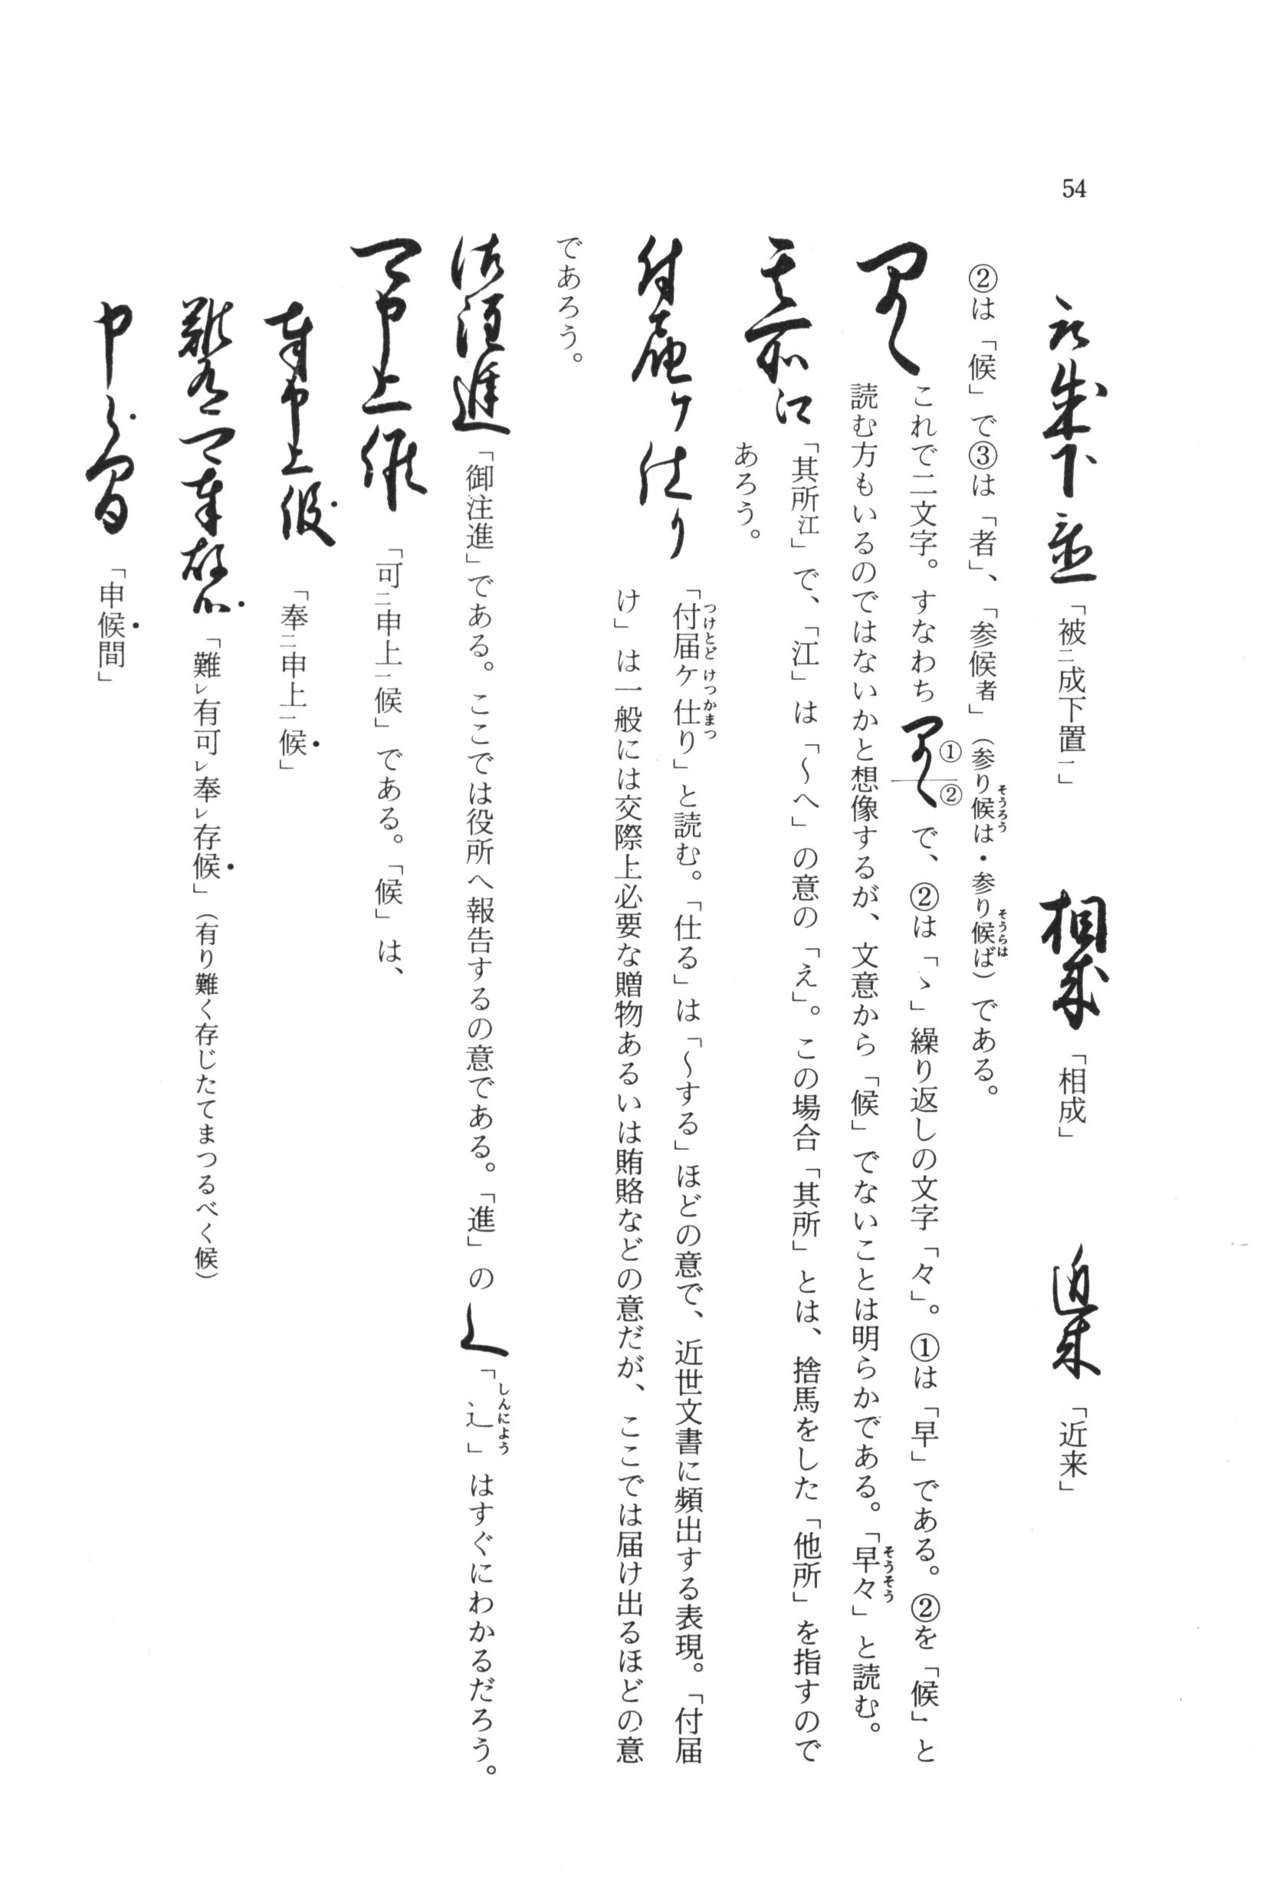 54
「被二成下置一」 「相成」 「近来」
②は「候」で③は「者」、「参候者」（参り候は・参り候ば）である。
これで二文字。すなわち ① ② で、②は「ゝ」繰り返しの文字「々」。①は「早」である。②を「候」と
読む方もいるのではないかと想像するが、文意から「候」でないことは明らかである。「早々」と読む。
「其所江」で、「江」は「～へ」の意の「え」。この場合「其所」とは、捨馬をした「他所」を指すので
あろう。
「付届ケ仕り」と読む。「仕る」は「～する」ほどの意で、近世文書に頻出する表現。「付届
け」は一般には交際上必要な贈物あるいは賄賂などの意だが、ここでは届け出るほどの意
であろう。
「御注進」である。ここでは役所へ報告するの意である。「進」の 「辶」はすぐにわかるだろう。
「可二申上一候」である。「候」は、
「奉二申上一候」
「難レ有可レ奉レ存候」（有り難く存じたてまつるべく候）
「申候間」